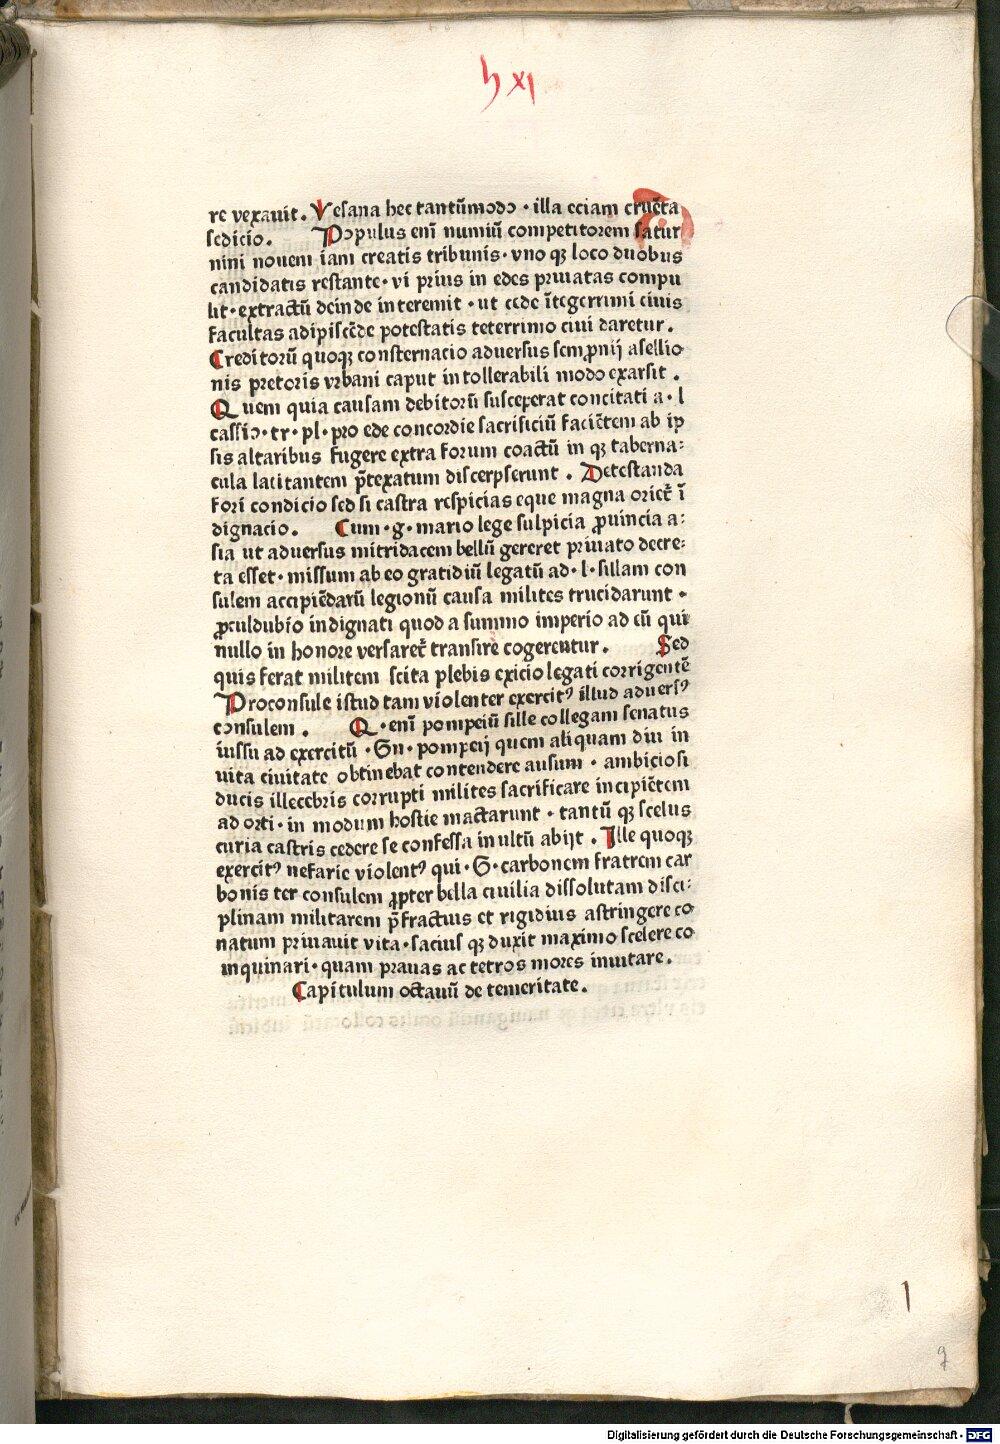 h xı
re vexauit. Vesana hec tantūmodo · illa eciam cruēta
sedicio. Populus enī numiū competitorem satur
nini nouem iam creatis tribunis · vno qȝ loco duobus
candidatis restante · vi prius in edes priuatas compu
lit · extractū deinde interemit · ut cede ītegerrimi ciuis
facultas adipiscēde potestatis teterrimo ciui daretur.
Creditorū quoqȝ consternacio aduersus semꝓnij asellio
nis pretoris vrbani caput in tollerabili modo exarsit.
Quem quia causam debitorū susceperat concitati a · l
cassio · tr · pl · pro ede concordie sacrificiū faciētem ab ip
sis altaribus fugere extra forum coactū in qȝ taberna⸗
cula latitantem p̄textatum discerpserunt. Detestanda
fori condicio sed si castra respicias eque magna oriet᷑ ī
dignacio. Cum · g · mario lege sulpicia ꝓuincia a⸗
sia ut aduersus mitridacem bellū gereret priuato decre⸗
ta esset · missum ab eo gratidiū legatū ad · l · sillam con
sulem accipiēdarū legionū causa milites trucidarunt ·
ꝓculdubio indignati quod a summo imperio ad eū qui
nullo in honore versaret᷑ transire cogerentur. Sed
quis ferat militem scita plebis exicio legati corrigentē
Proconsule istud tam violenter exercitꝰ illud aduersꝰ
consulem. Q · enī pompeiū sille collegam senatus
iussu ad exercitū · Gn · pompeij quem aliquam diu in
uita ciuitate obtinebat contendere ausum · ambiciosi
ducis illecebris corrupti milites sacrificare incipiētem
ad orti · in modum hostie mactarunt · tantū qȝ scelus
curia castris cedere se confessa inultū abijt. Ille quoqȝ
exercitꝰ nefarie violentꝰ qui · G · carbonem fratrem car
bonis ter consulem ꝓpter bella ciuilia dissolutam disci⸗
plinam militarem p̄fractius et rigidius astringere co
natum priuauit vita · sacius qȝ duxit maximo scelere co
inquinari · quam prauas ac tetros mores inuitare.
Capitulum octauū de temeritate.
1
Digitalisierung gefördert durch die Deutsche Forschungsgemeinschaft · DFG